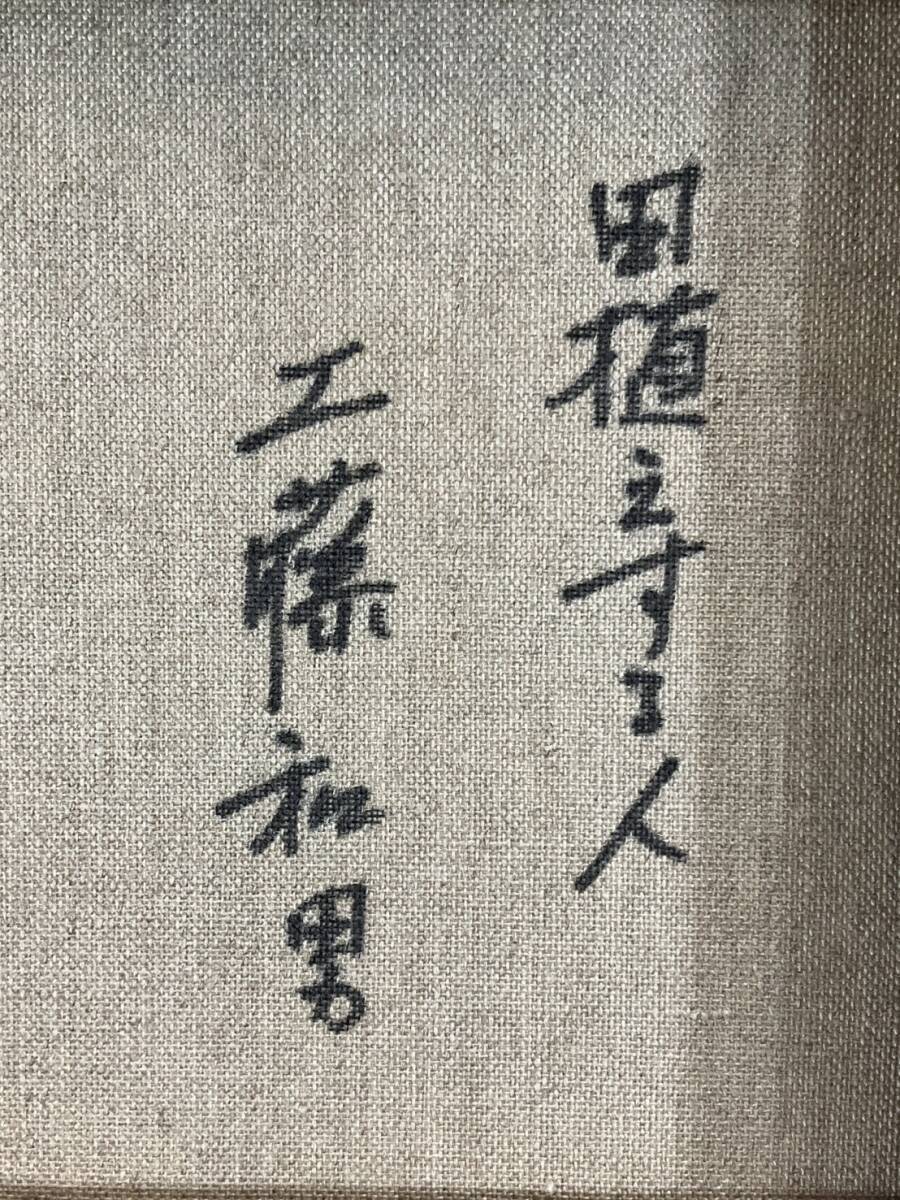 田植えする人
工藤和男